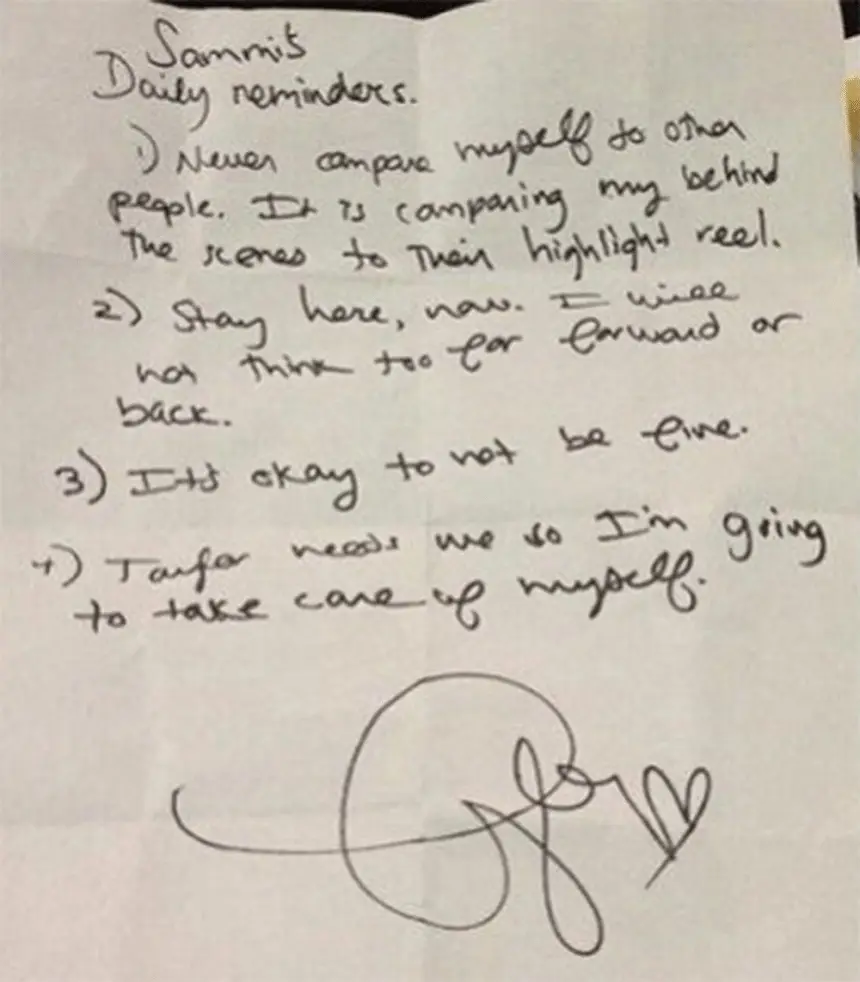 Sammi's
Daily reminders.
1) Never compare myself to other
people. It is comparing my behind
the scenes to their highlight reel.
2) Stay here, now. I will
not think too far forward or
back.
3) It's okay to not be fine.
4) Taylor needs me so I'm going
to take care of myself.